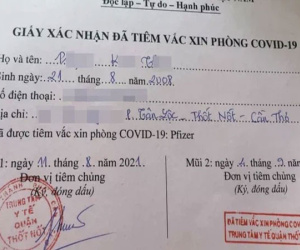 Độc lập - Tự do - Hạnh phúc
GIẤY XÁC NHẬN ĐÃ TIÊM VẮC XIN PHÒNG COVID-19
Họ và tên:
Sinh ngày: 21 tháng 8 năm 2008
Số điện thoại:
Địa chỉ: P. Tân Lộc - Thốt Nốt - Cần Thơ
Đã được tiêm vắc xin phòng COVID-19: Pfizer
1: ngày 11 .8. 2021
Mũi 2: ngày
Đơn vị tiêm chủng
Đơn vị tiêm chủng
(Ký, đóng dấu)
(Ký, đóng dấu)
TRUNG TÂM
Y TẾ
QUẬN
THỐT NỐT
ĐÃ TIÊM VẮC XIN PHÒNG COV
TRUNG TÂM Y TẾ QUẬN THỐT